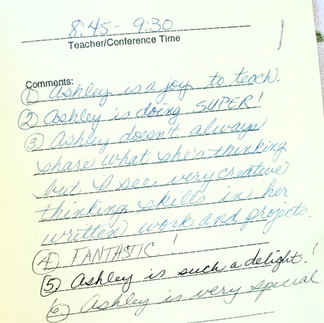 8:45 - 9:30
Teacher/Conference Time
Comments:
① Ashley is a joy to teach.
② Ashley is doing SUPER!
③ Ashley doesn't always
share what she's thinking
but I see very creative
thinking skills in her
written work and projects.
④ FANTASTIC!
⑤ Ashley is such a delight!
⑥ Ashley is very special